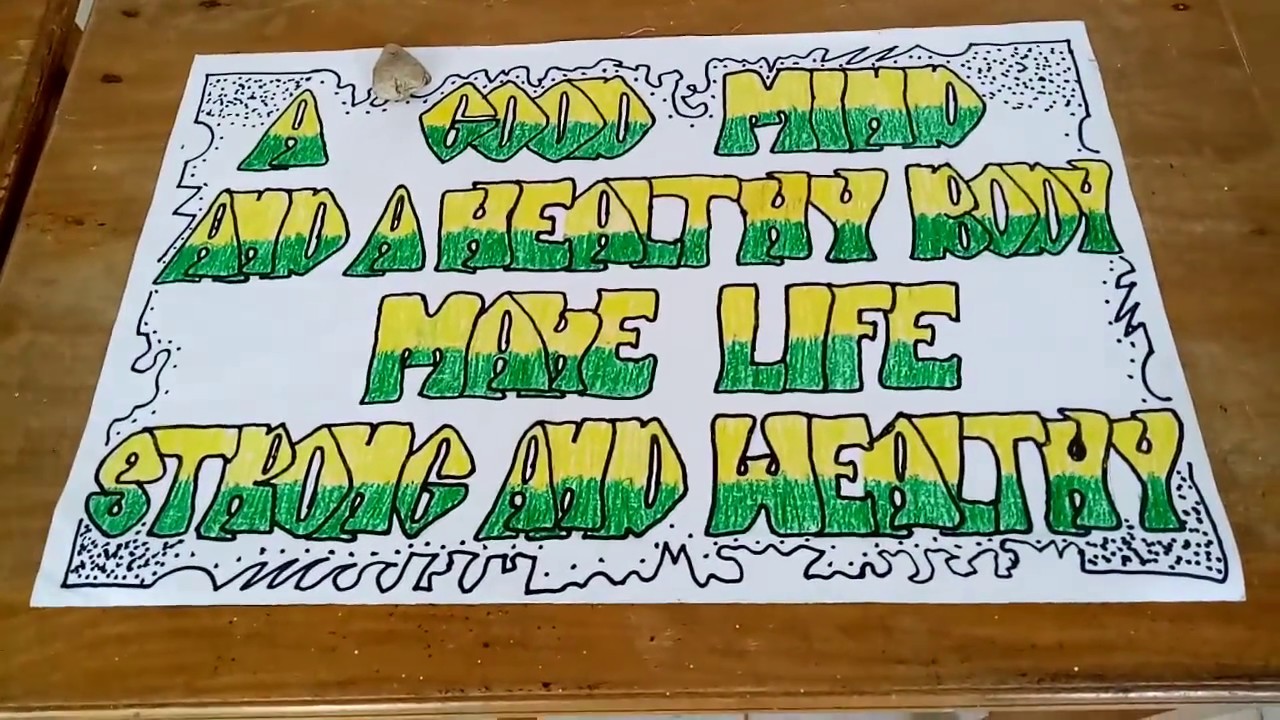 A GOOD MIND
AND A HEALTHY BODY
MAKE LIFE
STRONG AND WEALTHY